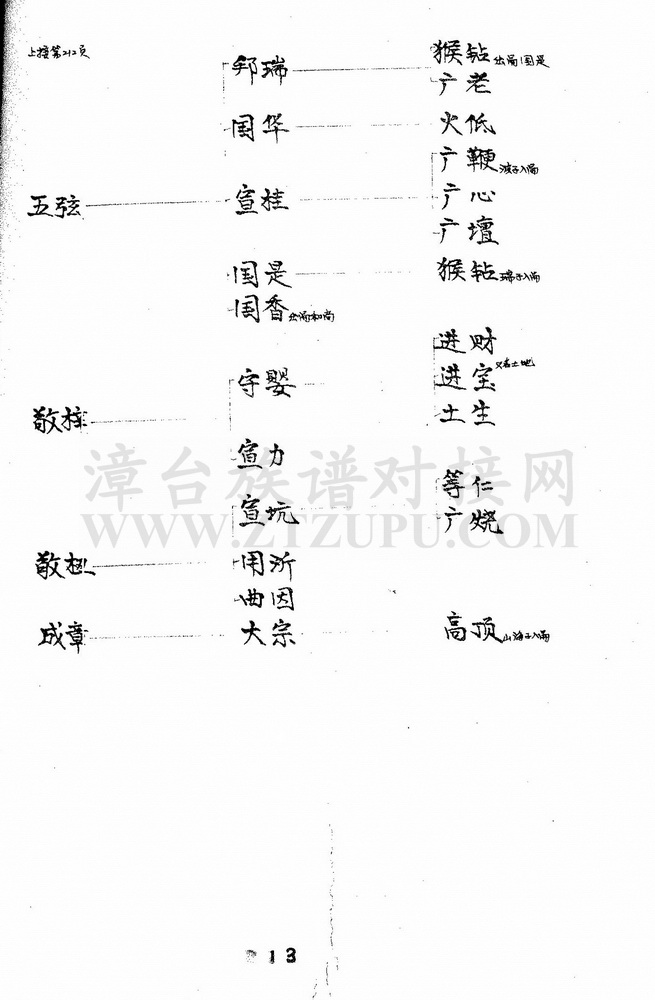 上接第212页
邦瑞 猴钻出洞国是
广老
国华 火低
五弦 宣桂 广鞭
广心
广壇
国是 猴钻瑞子入洞
国香
守婴 进财
进宝又名土地
土生
敬梓
宣力
宣坑 等仁
广烧
用沂
曲因
成章 大宗 高顶
漳台族谱对接网
WWW.ZTZUPU.COM
213